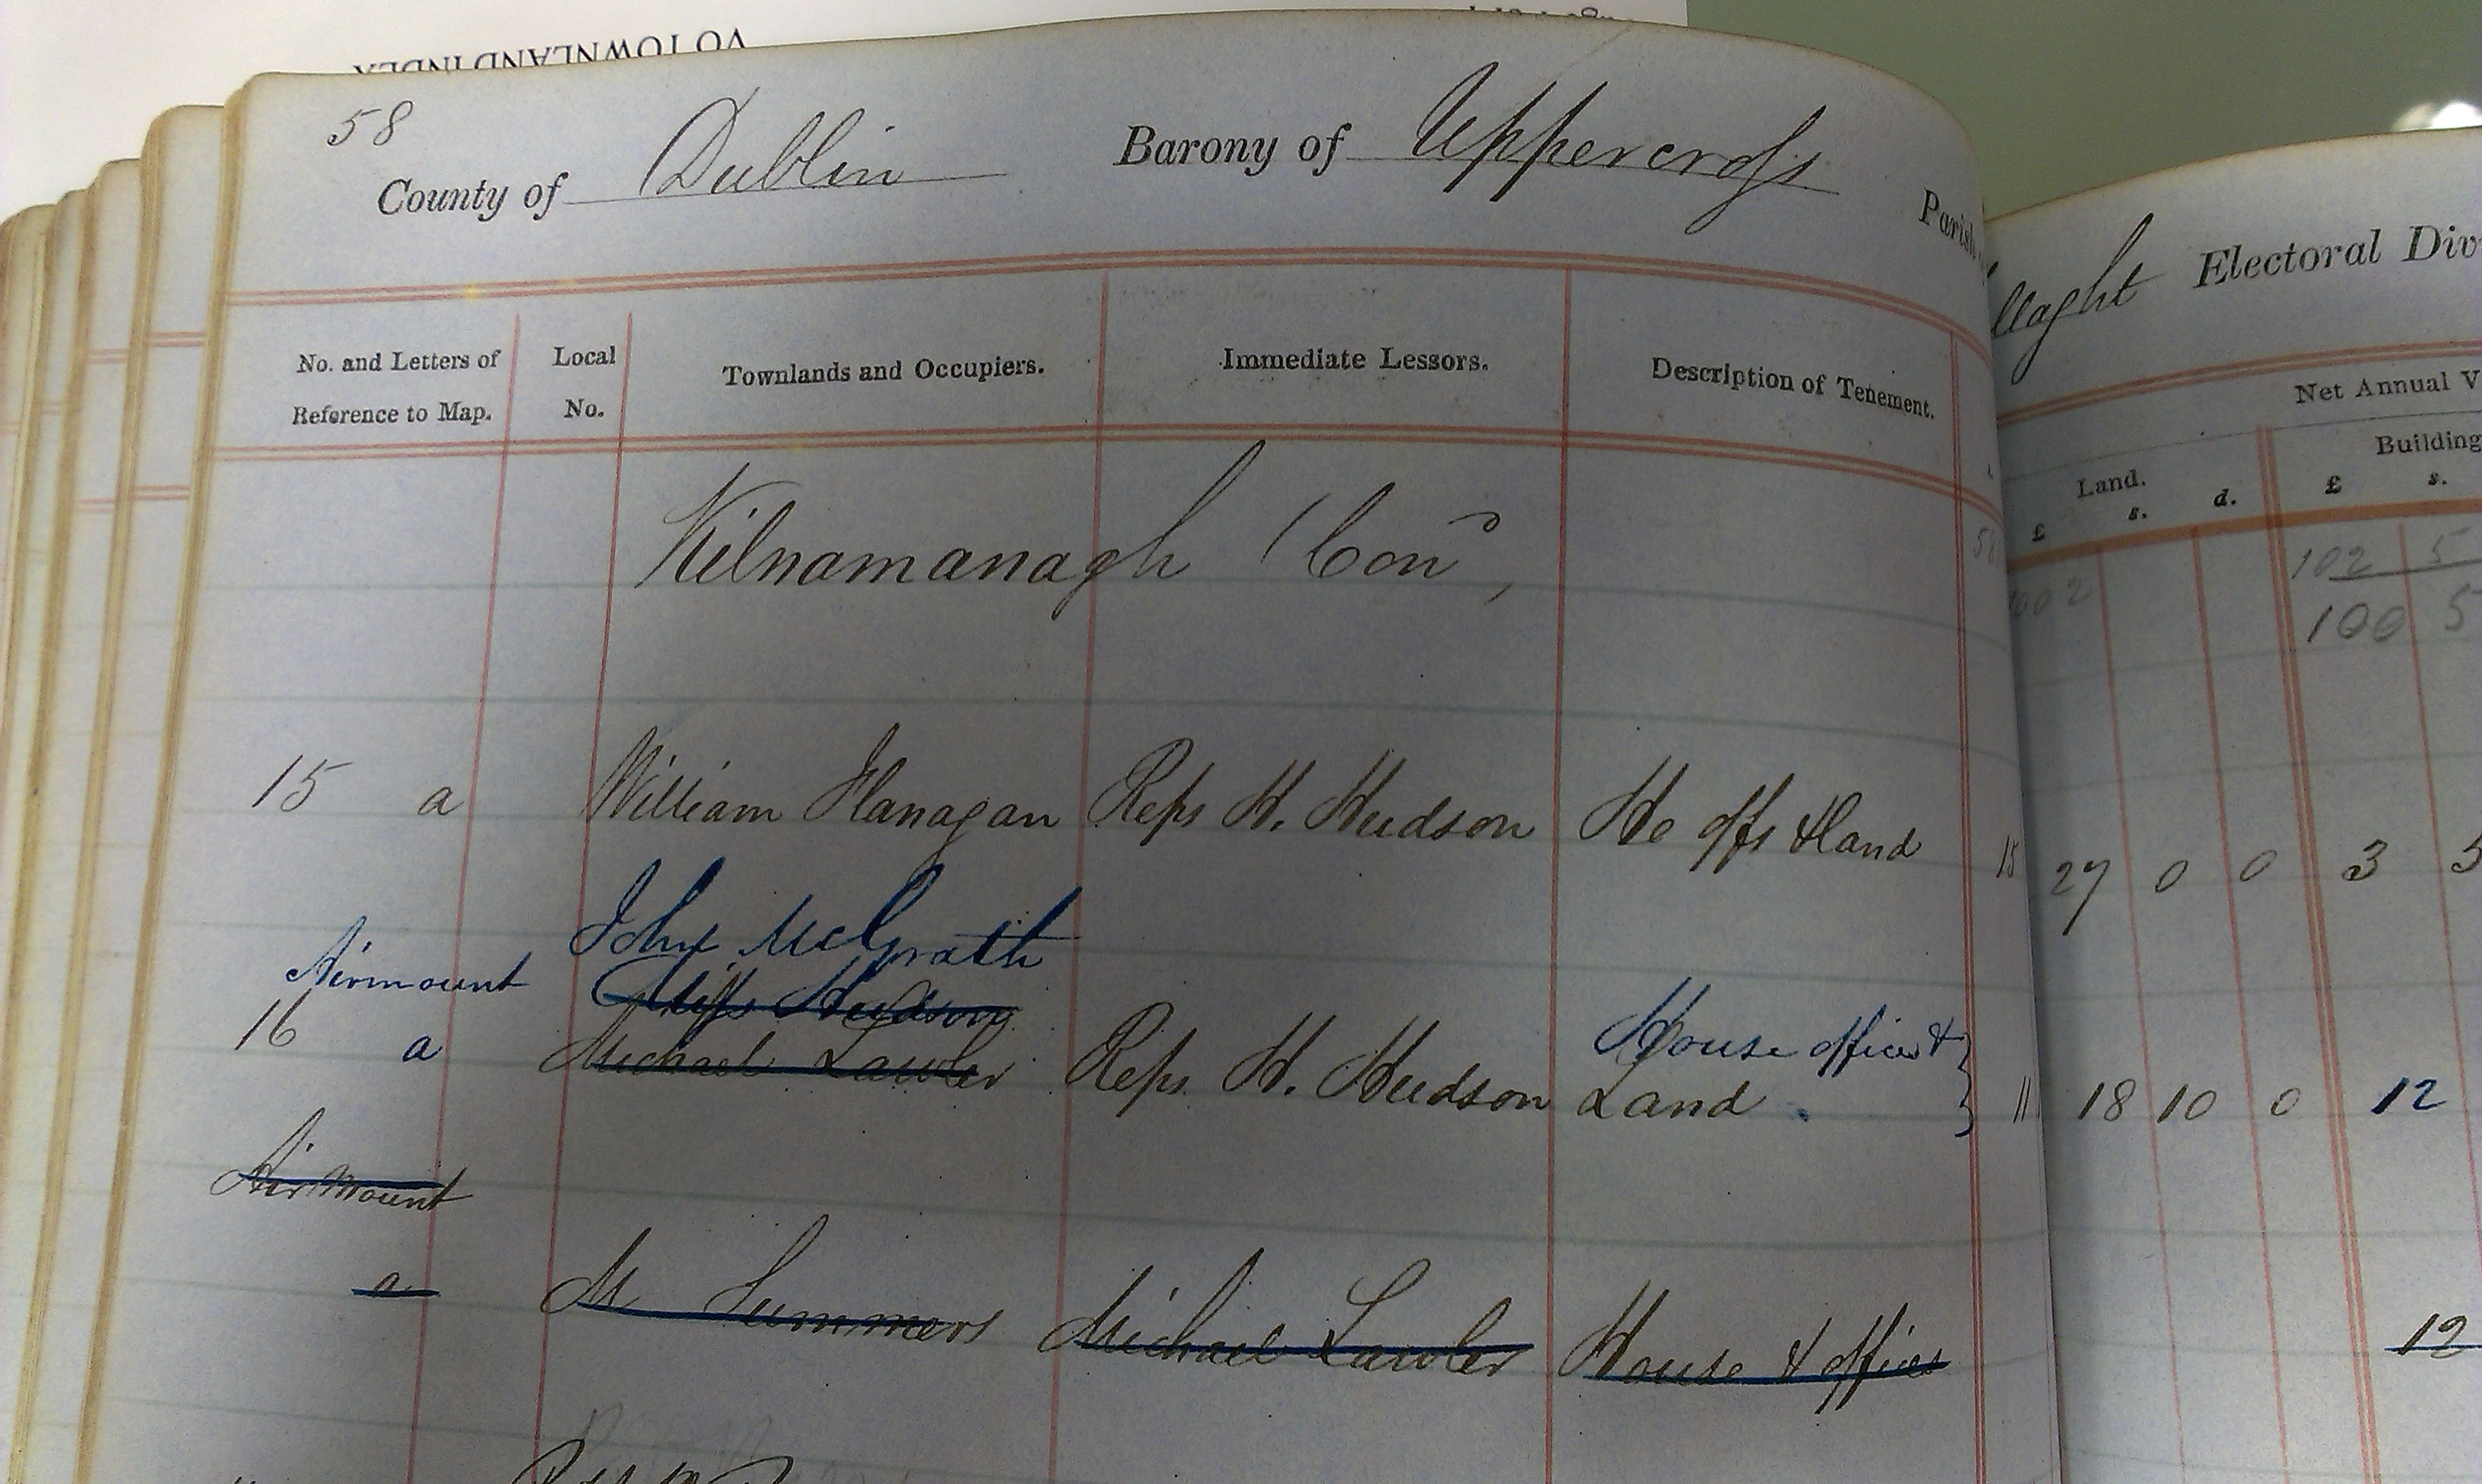 VO TOWNLAND INDEX
58
County of Dublin Barony of Uppercross Parish
llaght Electoral Div
No. and Letters of Reference to Map. Local No. Townlands and Occupiers. Immediate Lessors. Description of Tenement.
Net Annual V
Land. Building
£ s. d. £ s.
102 5
100 5
Kilnamanagh (Cond,
15 a William Flanagan Reps H. Hudson Ho offs & Land 15 27 0 0 3 5
John McGrath
Airmount Miss Hudson House offices &
16 a Michael Lawler Reps H. Hudson Land 11 18 10 0 12
Air Mount
a M Summers Michael Lawler House & offices 12